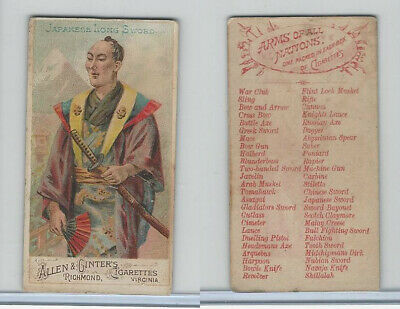 JAPANESE LONG SWORD.
ALLEN & GINTER'S
CIGARETTES
RICHMOND, VIRGINIA
ARMS OF ALL
NATIONS.
ONE PACKED IN EACH BOX
OF CIGARETTES
War Club Flint Lock Musket
Sling Rifle
Bow and Arrow Cannon
Cross Bow Knights Lance
Battle Axe Russian Axe
Greek Sword Dagger
Mace Abyssinian Spear
Bow Gun Saber
Halberd Poniard
Blunderbuss Rapier
Two-handed Sword Machine Gun
Javelin Carbine
Arab Musket Stiletto
Tomahawk Chinese Sword
Assagai Japanese Sword
Gladiators Sword Sword-Bayonet
Cutlass Scotch Claymore
Cimeter Malay Creese
Lance Bull Fighting Sword
Duelling Pistol Falchion
Headsmans Axe Tooth Sword
Arquebus Midshipmans Dirk
Harpoon Nubian Sword
Bowie Knife Navajo Knife
Revolver Shillalah